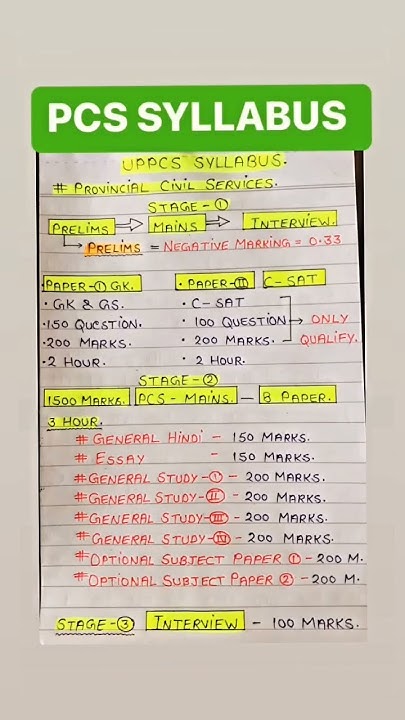 PCS SYLLABUS
UPPCS SYLLABUS.
# PROVINCIAL CIVIL SERVICES.
STAGE-①
PRELIMS ⇒ MAINS ⇒ INTERVIEW.
↳ PRELIMS = NEGATIVE MARKING = 0.33
PAPER-① GK. • PAPER-Ⅱ C-SAT
• GK & GS. • C-SAT
• 150 QUESTION. • 100 QUESTION → ONLY
• 200 MARKS. • 200 MARKS. QUALIFY.
• 2 HOUR. • 2 HOUR.
STAGE-②
1500 MARKS. PCS-MAINS - 8 PAPER.
3 HOUR.
# GENERAL HINDI - 150 MARKS.
# ESSAY - 150 MARKS.
# GENERAL STUDY-① - 200 MARKS.
# GENERAL STUDY-Ⅱ - 200 MARKS.
# GENERAL STUDY-Ⅲ - 200 MARKS.
# GENERAL STUDY-Ⅳ - 200 MARKS.
# OPTIONAL SUBJECT PAPER ① - 200 M.
# OPTIONAL SUBJECT PAPER ② - 200 M.
STAGE-③ INTERVIEW - 100 MARKS.